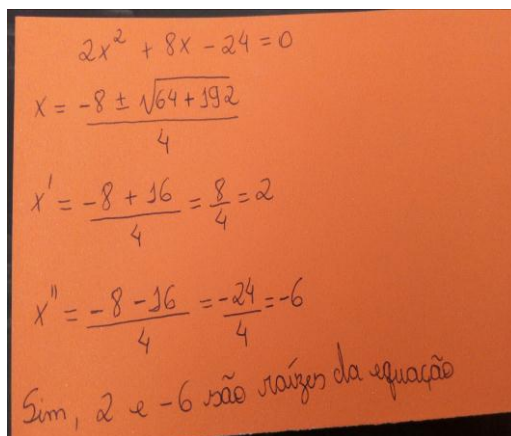 2x² + 8x - 24 = 0
x = -8 ± √64 + 192
4
x' = -8 + 16 = 8 = 2
4 4
x'' = -8 - 16 = -24 = -6
4 4
Sim, 2 e -6 são raízes da equação